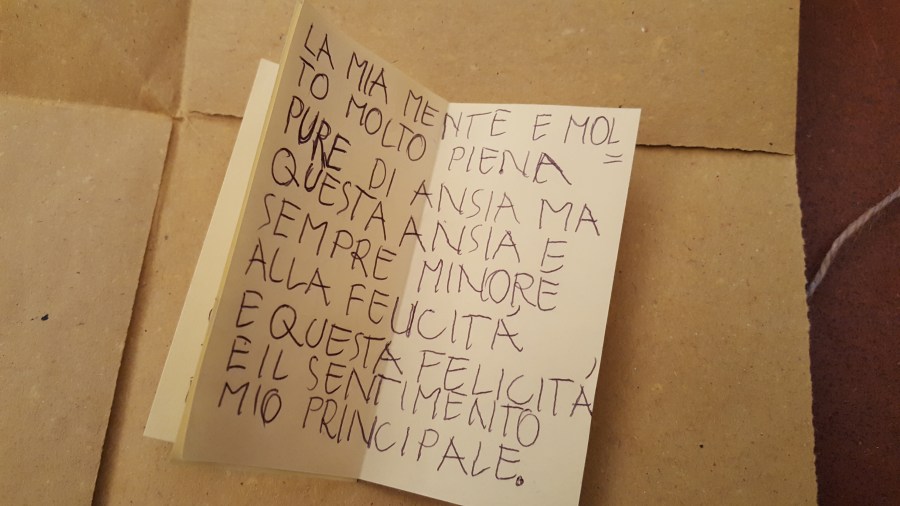 LA MIA MENTE E MOL=
TO MOLTO PIENA
PURE DI ANSIA MA
QUESTA ANSIA É
SEMPRE MINORE
ALLA FELICITÁ
E QUESTA FELICITÁ
É IL SENTIMENTO
MIO PRINCIPALE.